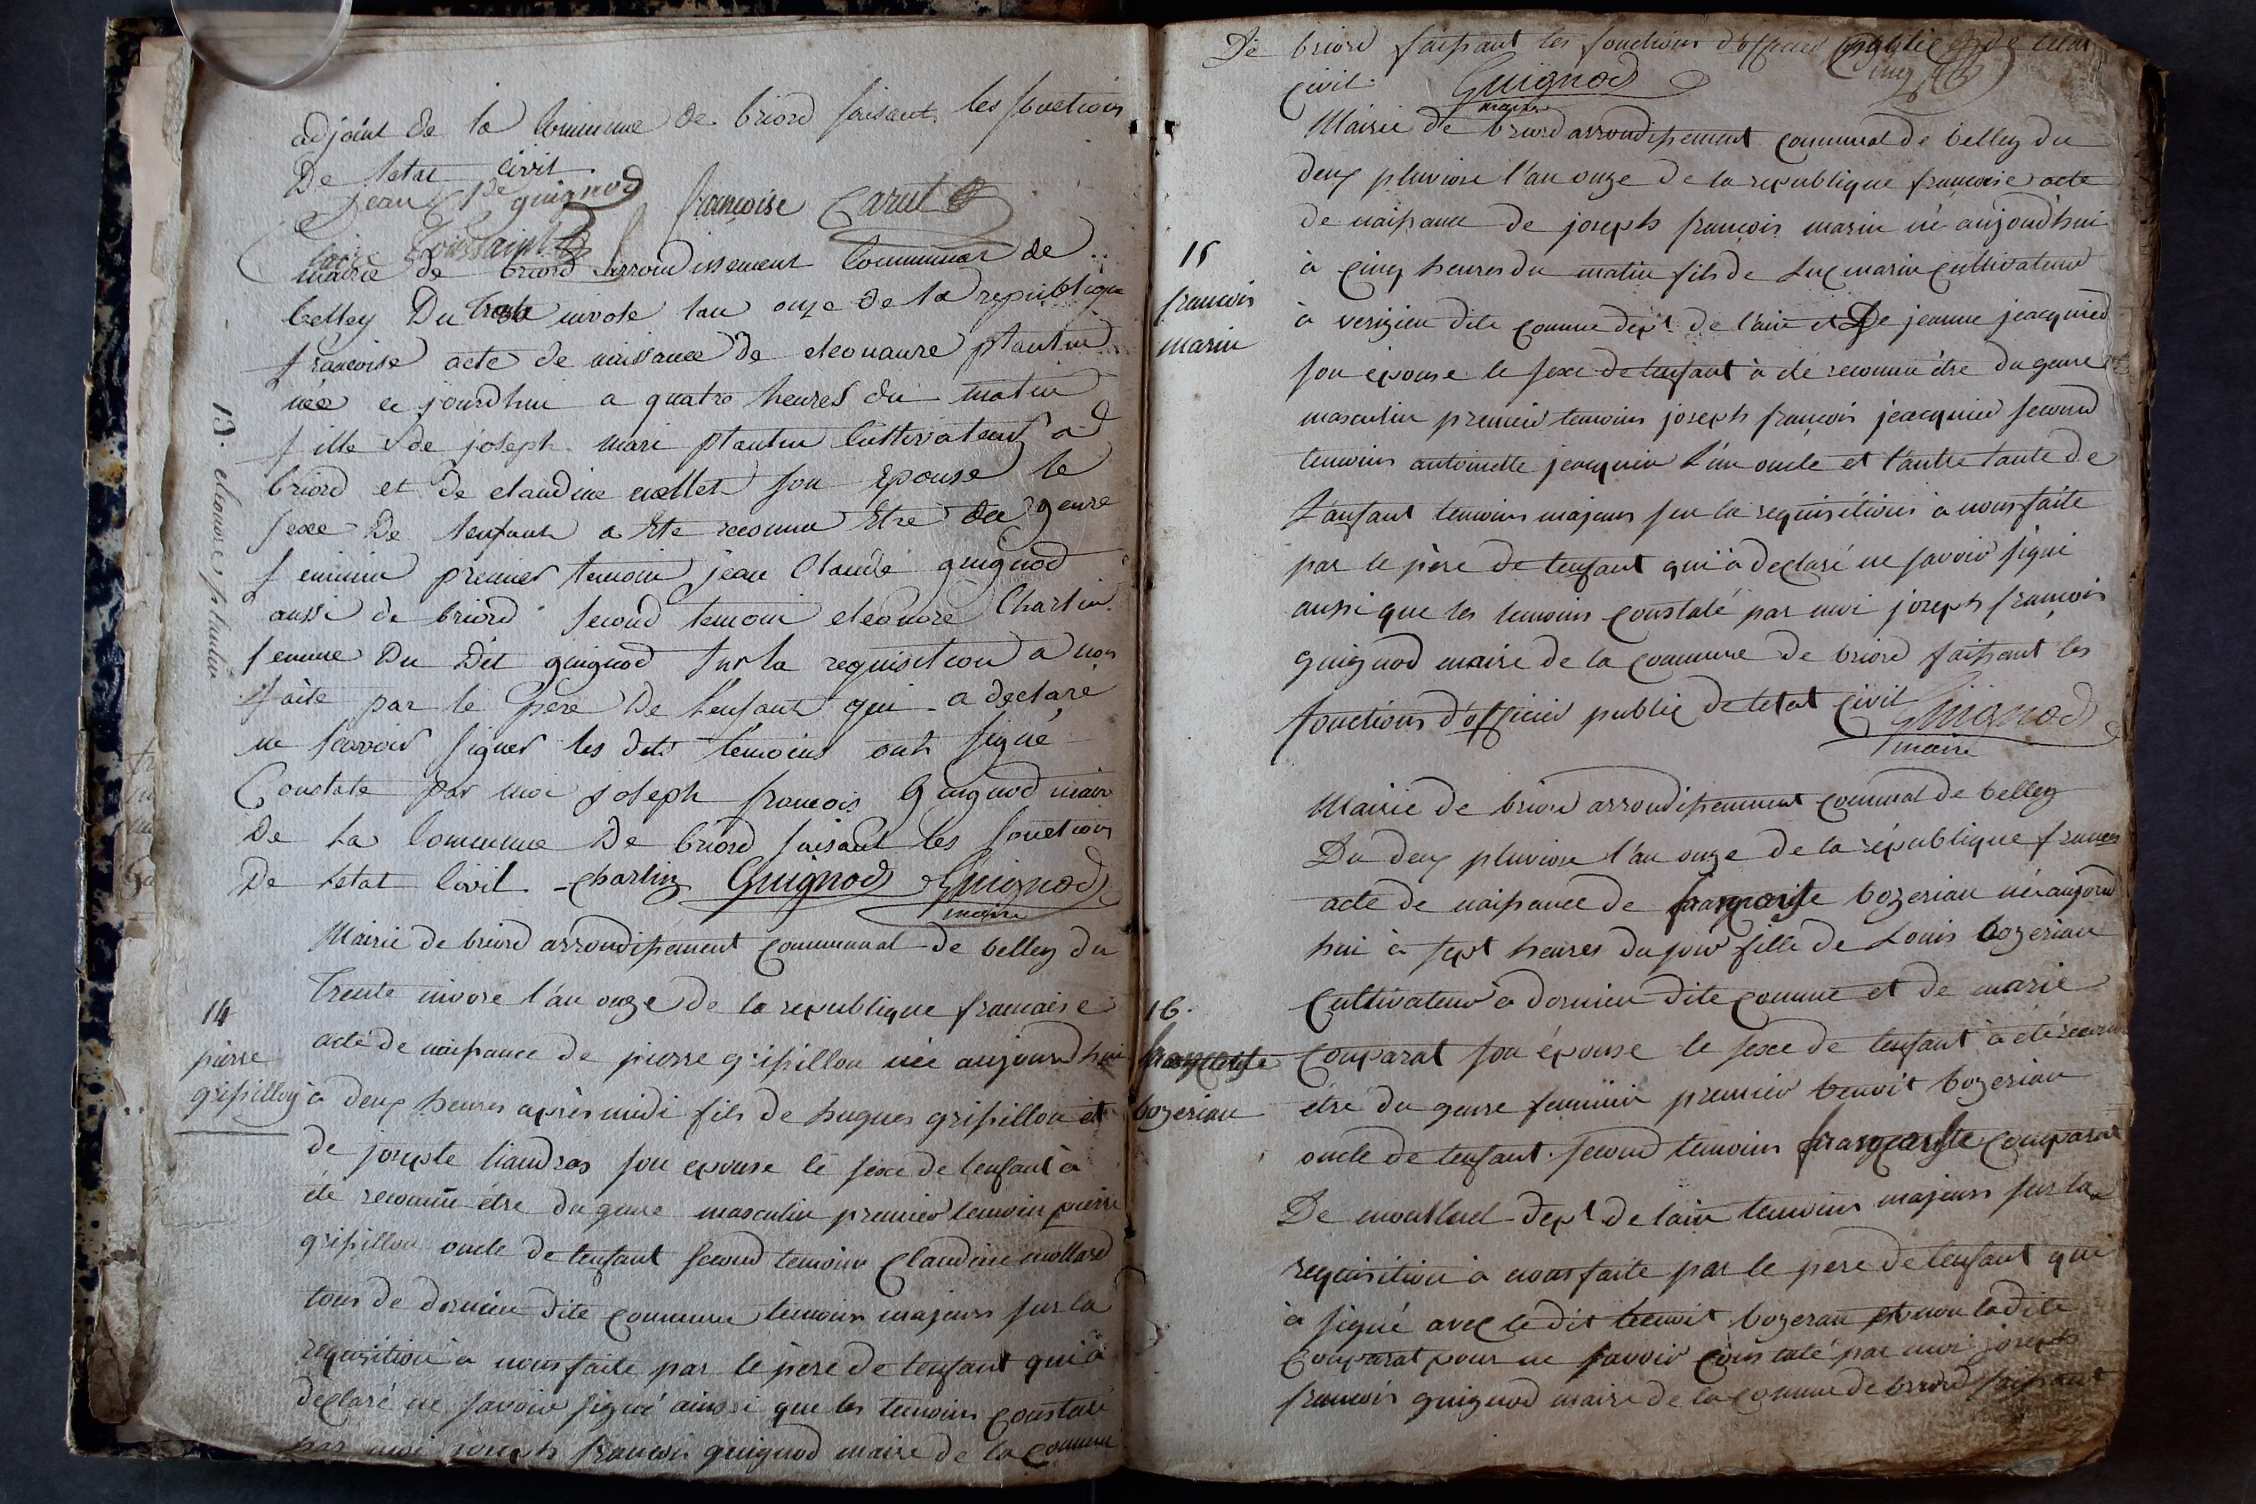 adjoint de la Commune de briord faisant les fonctions
De letat civil
Jean Cde guignod françoise Carul
Toussaint
mairie de briord arrondissement Communal de
belley Du trente nivose lan onze de la republique
françoise acte de naissance de eleonaure plantin
née ce jourdhui a quatre heures du matin
fille de joseph mari plantin Cultivateur a
briord et de claudine mollet son Epouse le
sexe De lenfant a Ete reconnu Etre du genre
feminin premier temoin jean Claude guignod
aussi de briord second temoin eleonore Charlin
femme Du Dit guignod sur la requisition a nous
faite par le pere De lenfant qui a declaré
ne scavoir signer les dits temoins ont signé
Constate par moi joseph françois Guignod maire
De la Commune De briord faisant les fonctions
De letat Civil charlin Guignod Guignod
maire
13. eleonore plantin
Mairie de briord arrondissement communal de belley du
trente nivose l'an onze de la republique françaisse
14
pierre
grisillon
acte de naissance de pierre grisillon née aujourdhui
à deux heures après midi fils de hugues grisillon et
de josepte liandras son epouse le sexe de lenfant à
été reconnu être du genre masculin premier temoin pierre
grisillon oncle de lenfant second temoin Claudine mollard
tous de dornieu dite commune temoins majeurs sur la
requisition à nous faite par le père de lenfant qui à
declaré ne savoir signé ainssi que les temoins constaté
par moi joseph françois guignod maire de la commune
De briord faissant les fonctions d'officier public de letat
civil. Guignod
maire
Mairie de briord arrondissement communal de belley du
deux pluviose l'an onze de la republique francoise acte
de naissance de joseph françois marin né aujourdhui
15
francois
marin
à cinq heures du matin fils de Luc marin cultivateur
à verizieu dite comune dept. de l'ain et De jeanne jeacquied
son epouse le sexe de lenfant à été reconnu être du genre
masculin premier temoins joseph françois jeacquied second
temoins antoinette jeacquin L'un oncle et l'autre tante de
L'anfant temoins majeurs sur la requisitions à nous faite
par le père de lenfant qui à declaré ne savoir signé
aussi que les temoins constaté par moi joseph françois
guignod maire de la commune de briord faissant les
fonctions d'officier public de letat civil Guignod
maire
Mairie de briord arrondissement comunal de belley
Du deux pluviose l'an onze de la république frances
acte de naissance de françoise bozerian né aujourd
hui à sept heures du soir fille de Louis bozerian
16.
françoise
bozerian
Cultivateur à dornieu dite comune et de marie
Comparat son épouse le sexe de lenfant à été reconnu
être du genre feminin premier benoit bozerian
oncle de lenfant. second temoins françoise comparat
De dept. de lain temoins majeurs sur la
requisition à nous faite par le pere de lenfant qui
à signé avec le dit benoit bozeran et non la dite
Comparat pour ne savoir constaté par moi joseph
francois guignod maire de la comune de briord faissant